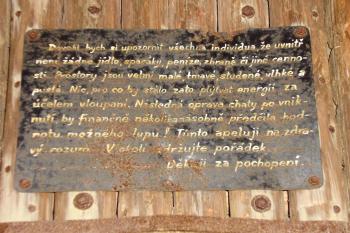 Dovolil bych si upozornit všechna individua, že uvnitř
není žádné jídlo, šparáky, peníze, zbraně či jiné cenno-
sti. Prostory jsou velmi malé, tmavé, studené, vlhké a
pusté. Nic, pro co by stálo zato plýtvat energií za
účelem vloupání. Následná oprava chaty po vnik-
nutí, by finančně několikanásobně předčila hod-
notu možného lupu! Tímto apeluji na zdra-
vý rozum. V okolí udržujte pořádek.
Děkuji za pochopení.